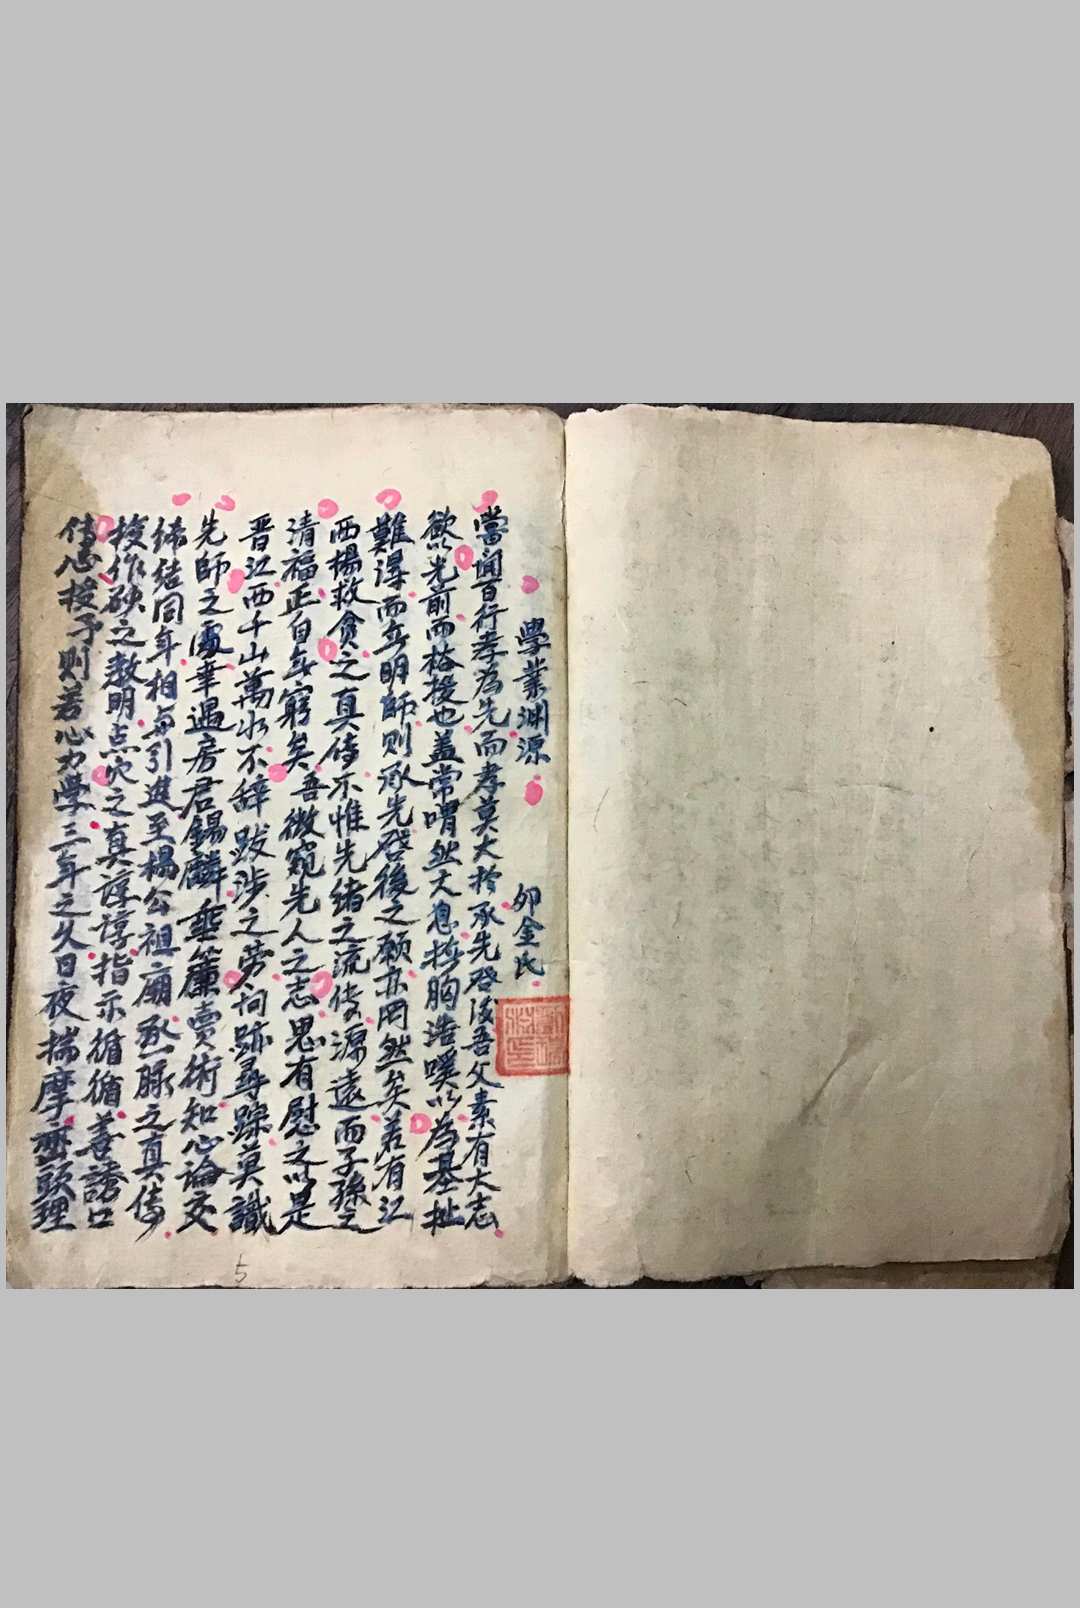 學業渊源 卯金氏
嘗闻百行孝為先而孝莫大於承先啓後吾父素有大志
欲以光前而裕後也蓋常喟然大息撫胸浩嘆以為基址
難得而明師则承先啓後之願亦罔然矣若有江
西楊救貧之真传不惟先緒之流传源遠而子孫之
清福正自無窮矣吾微窺先人之志思有慰之以是
晋江西千山萬水不辞跋涉之劳向跡尋踪莫識
先師之處幸遇房君錫麟垂簾賣術知心論交
締结同年相与引進至楊公祖廟承一脈之真传
授作砂之教明点穴之真諄諄指示循循善誘口
传心授予则苦心力學三年之久日夜揣摩齊頭理
5